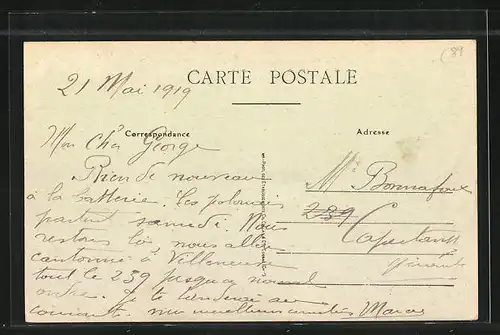 (89
21 Mai 1919
CARTE POSTALE
Correspondance
Adresse
Mon Cher George
Rien de nouveau
à la batterie. Les polonais
partent samedi. Nous
restons là, nous allons
cantonné à Villeneuve
tout le 239 jusqu'a nouvel
ordre. Je te tiendrai au
courant. meilleurs amitiés Marc
Mr Bonnafous
239
Capestang